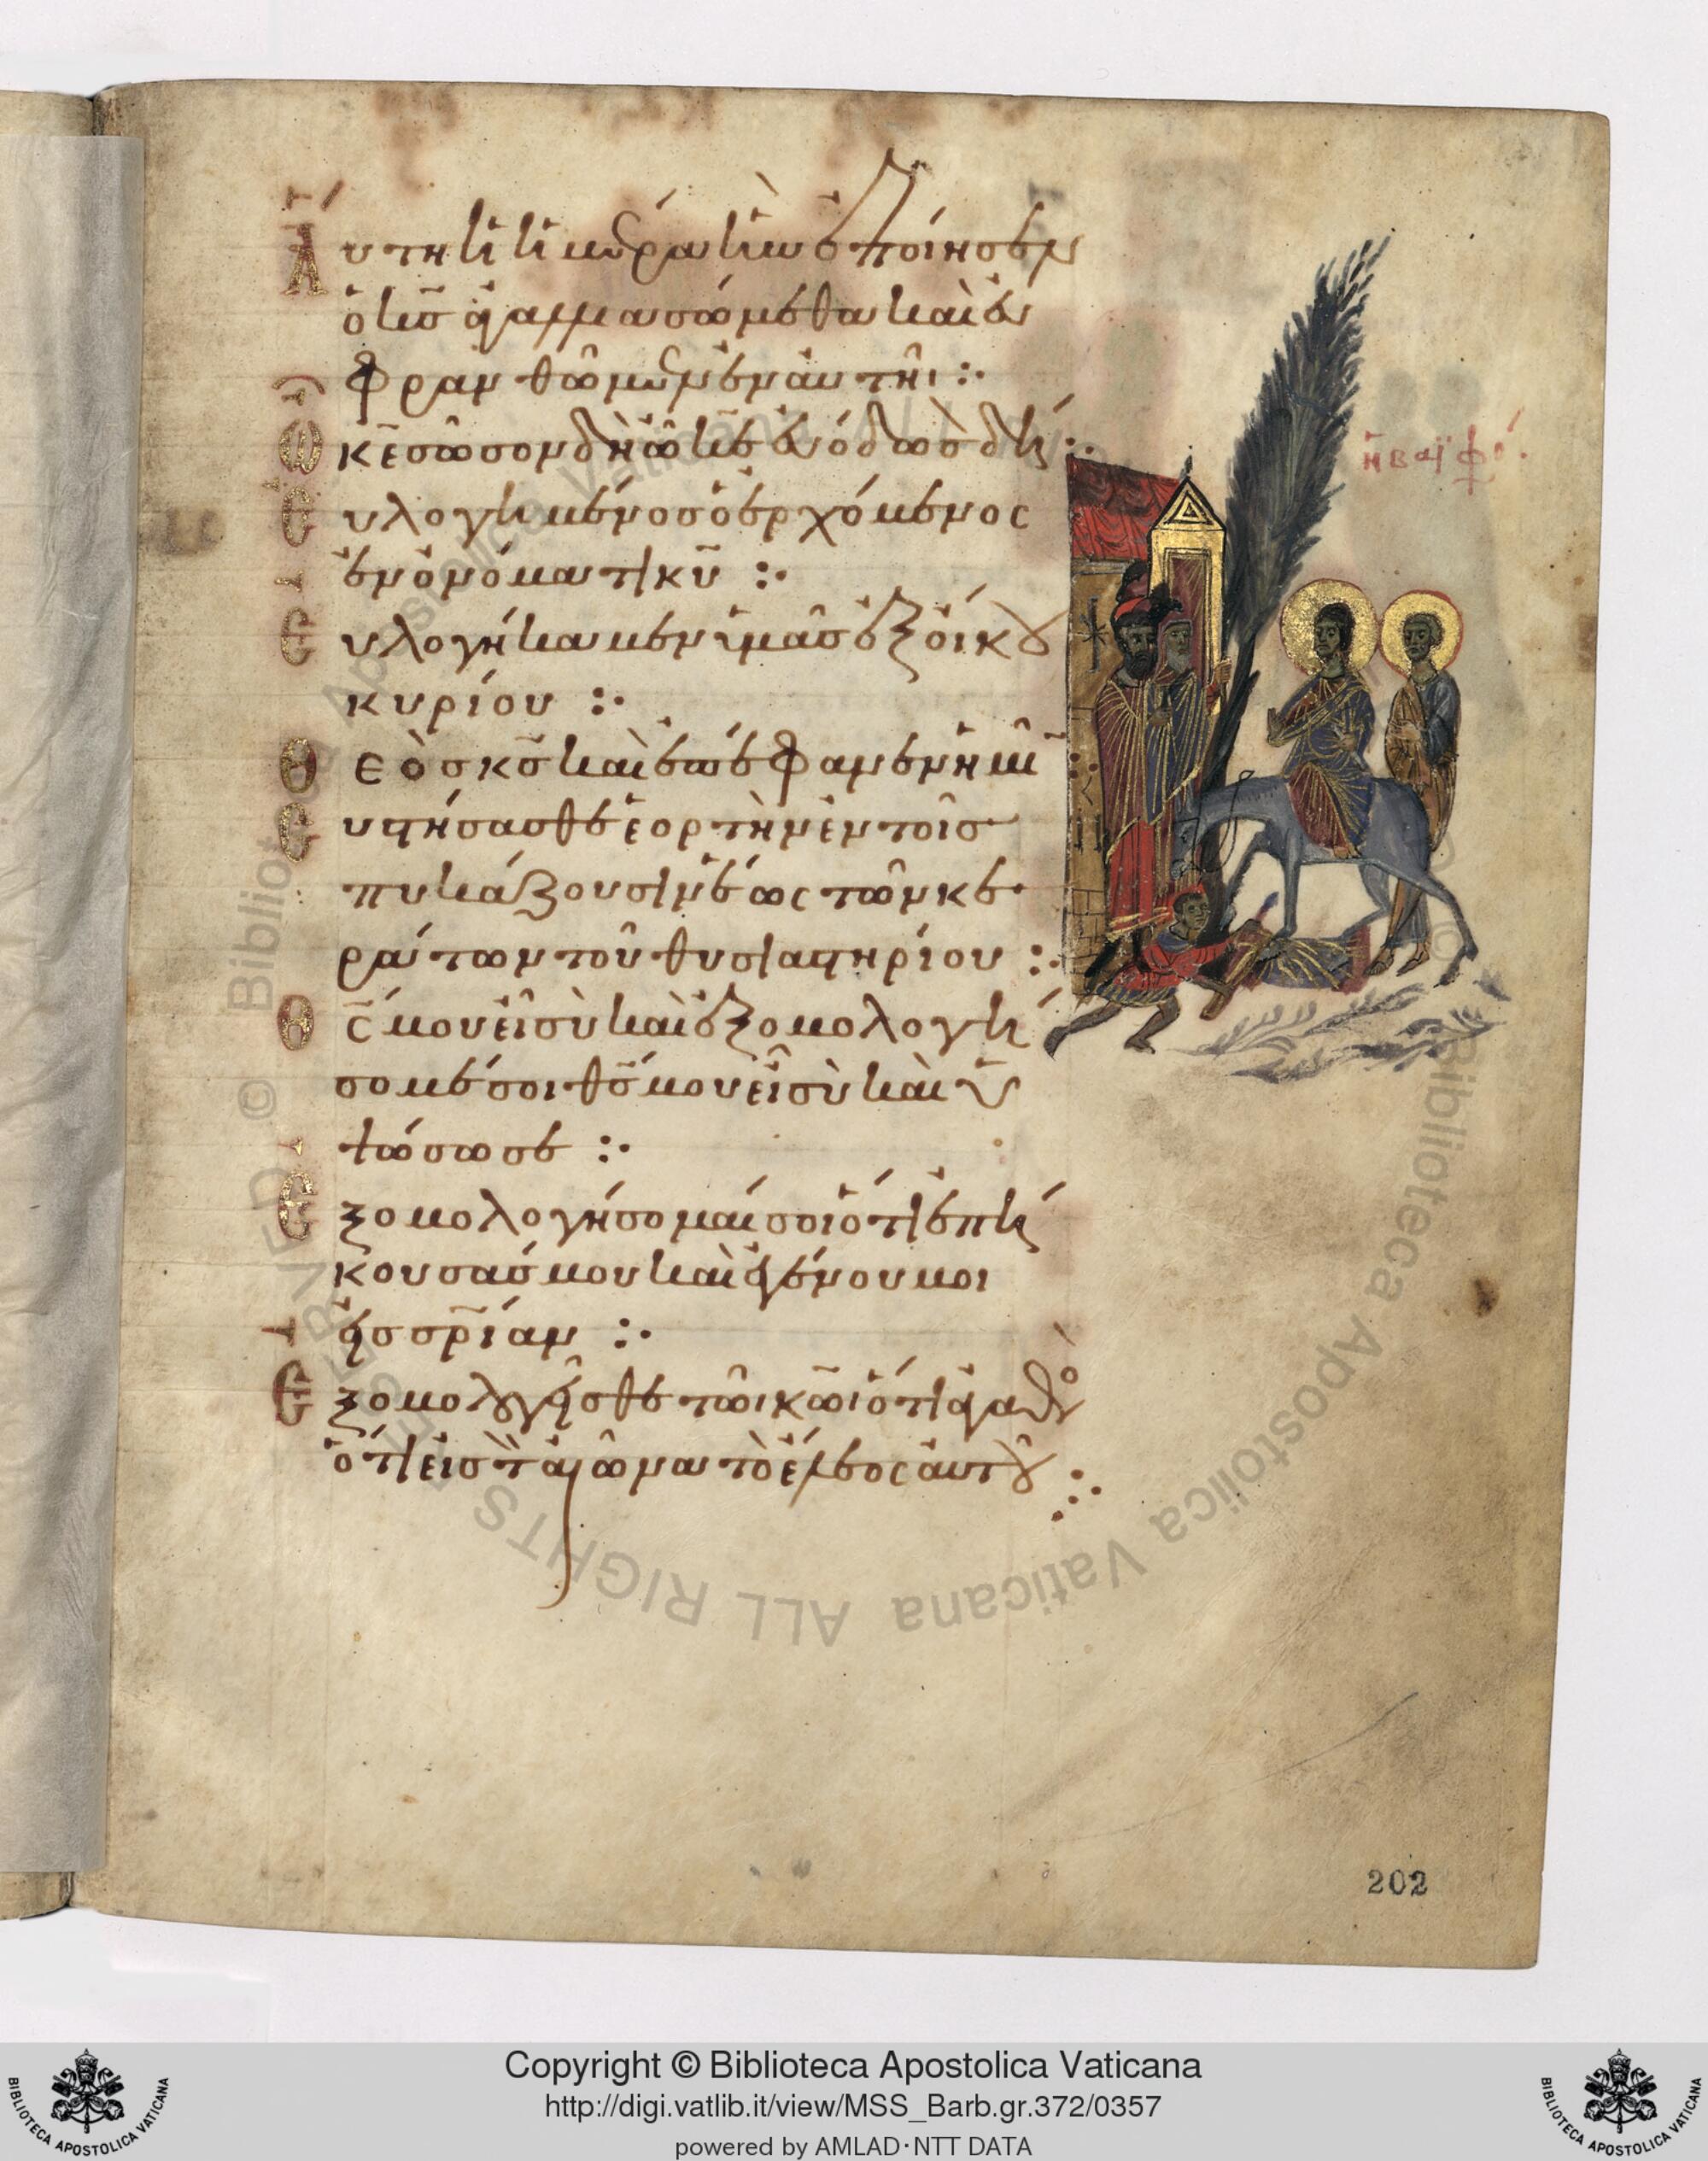 Αὕτη ἡ ἡμέρα ἣν ἐποίησεν
ὁ κς̅ ἀγαλλιασώμεθα καὶ εὐ
φρανθῶμεν ἐν αὐτῆι :·
Ὦ κε̅ σῶσον δὴ ὦ κε̅ εὐόδωσὸν δή :·
Εὐλογημένος ὁ ἐρχόμενος
ἐν ὀνόματι κυ̅ :·
Εὐλογήκαμεν ὑμᾶς ἐξ οἴκου
κυρίου :·
Θεὸς κς̅ καὶ ἐπέφανεν ἡμῖν :·
Συστήσασθε ἑορτὴν ἐν τοῖς
πυκάζουσιν ἕως τῶν κε
ράτων τοῦ θυσιαστηρίου :·
Θς̅ μου εἶ σὺ καὶ ἐξομολογή
σομέ σοι θς̅ μου εἶ σὺ καὶ ὑ
ψώσω σε :·
Ἐξομολογήσομαί σοι ὅτι ἐπή
κουσάς μου καὶ ἐγένου μοι
εἰς σρ̅ίαν :·
Ἐξομολογεῖσθε τῶι κω̅ι ὅτι ἀγαθὸς
ὅτι εἰς τὸν αἰῶνα τὸ ἔλεος αὐτοῦ :·
ἡ βαϊφό
202
Copyright © Biblioteca Apostolica Vaticana
http://digi.vatlib.it/view/MSS_Barb.gr.372/0357
powered by AMLAD·NTT DATA
BIBLIOTECA APOSTOLICA VATICANA
BIBLIOTECA APOSTOLICA VATICANA